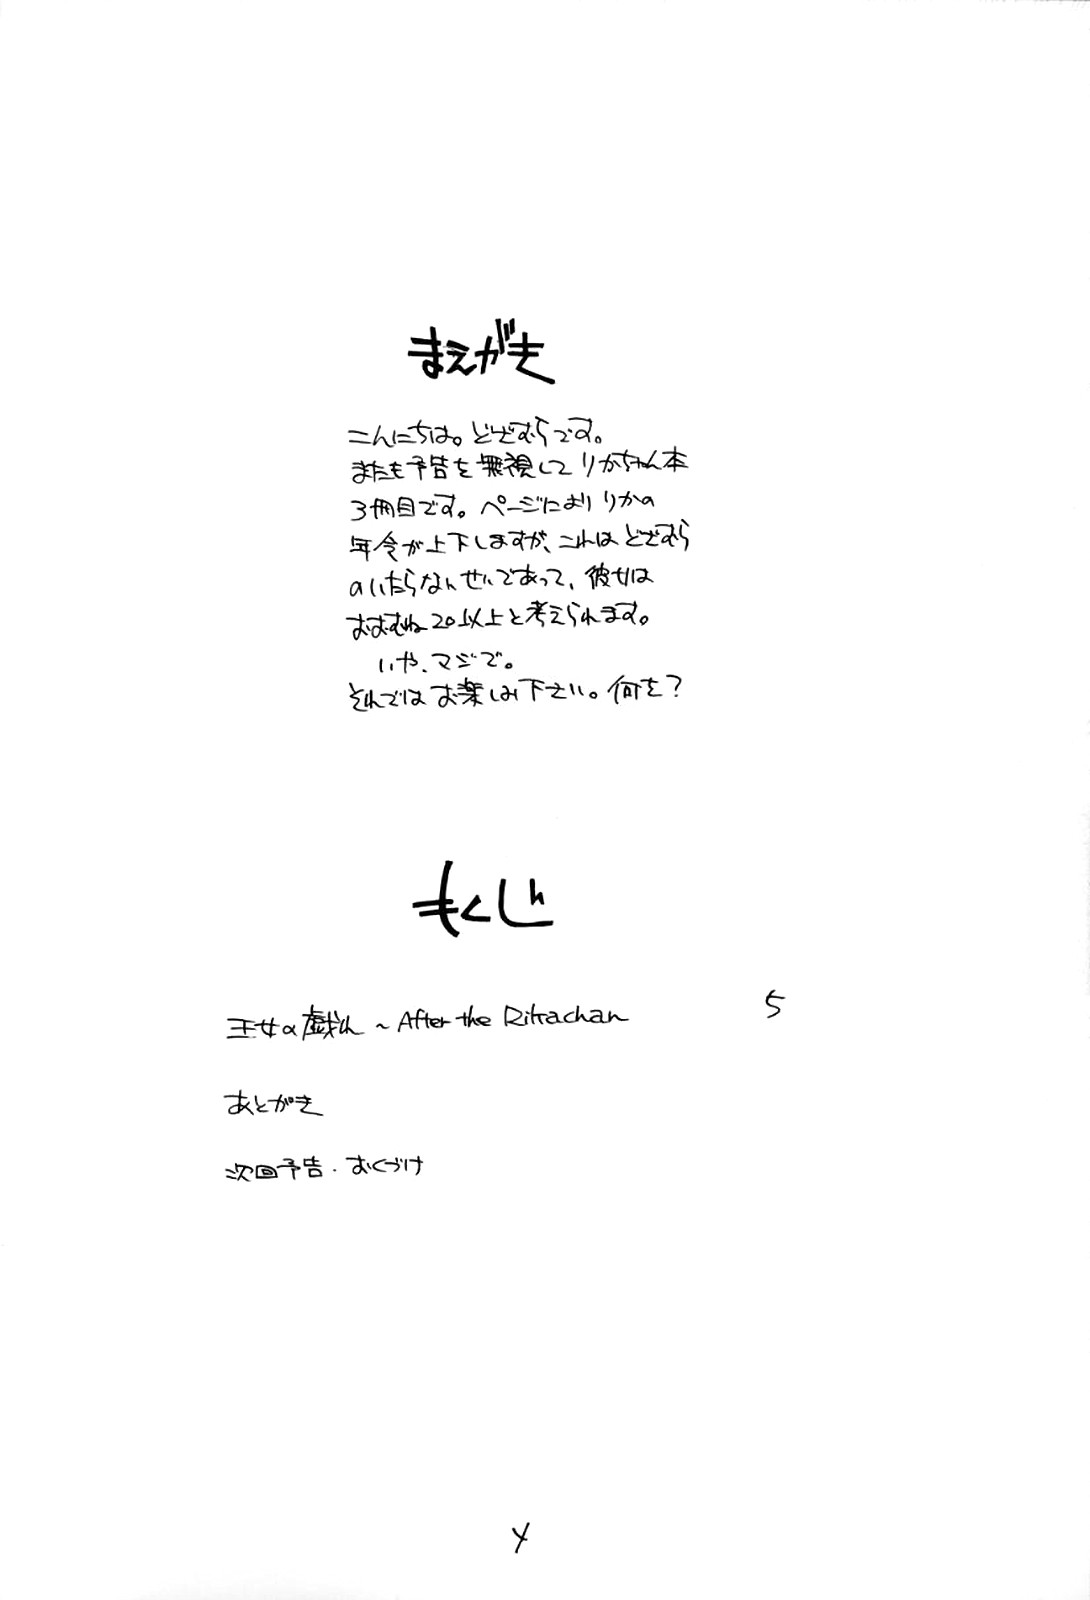 まえがき
こんにちは。どざむらです。
またも予告を無視して りかちゃん本
3冊目です。ページにより りかの
年令が上下しますが、これは どざむら
のいたらないせいであって、彼女は
おおむね20以上と考えられます。
いや、マジで。
それでは お楽しみ下さい。何を?
もくじ
王女の戯れ ~After the Rikachan 5
あとがき
次回予告・おくづけ
4